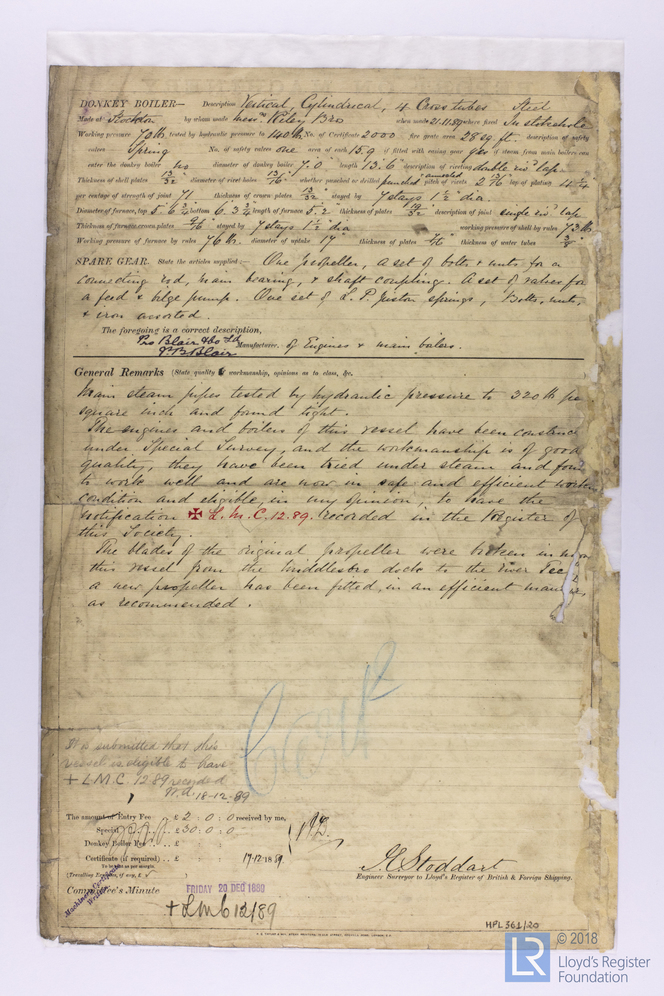 DONKEY BOILER— Description Vertical, Cylindrical, 4 Cross tubes Steel
Made at Stockton by whom made Messrs Riley Bros when made 21.11.89 where fixed In stokehole
Working pressure 70 lb tested by hydraulic pressure to 140 lb No. of Certificate 2000 fire grate area 28 sq. ft. description of safety
valves Spring No. of safety valves one area of each 15.9 if fitted with easing gear yes if steam from main boilers can
enter the donkey boiler no diameter of donkey boiler 7.0" length 13.6" description of riveting double riv'd lap
Thickness of shell plates 13/32" diameter of rivet holes 13/16" whether punched or drilled punched & annealed pitch of rivets 2 13/16" lap of plating 4 1/4"
per centage of strength of joint 71 thickness of crown plates 13/32" stayed by 7 stays 1 1/2" dia.
Diameter of furnace, top 5'. 6 3/4" bottom 6'. 3 3/4" length of furnace 5'. 2" thickness of plates 19/32" description of joint single riv'd lap
Thickness of furnace crown plates 9/16" stayed by 7 stays 1 1/2" dia working pressure of shell by rules 73 lb
Working pressure of furnace by rules 76 lb. diameter of uptake 17" thickness of plates 7/16" thickness of water tubes 3/8"
SPARE GEAR. State the articles supplied:— One propeller, a set of bolts & nuts for a
connecting rod, main bearing, & shaft couplings. A set of valves for
a feed & bilge pump. One set of L.P. piston springs, Bolts, nuts,
& iron assorted.
The foregoing is a correct description,
Pro Blair & Co Ld
G P B Blair Manufacturer. of Engines & main boilers.
General Remarks (State quality of workmanship, opinions as to class, &c.
Main steam pipes tested by hydraulic pressure to 320 lb pe
square inch and found tight.
The engines and boilers of this vessel have been construc
under Special Survey, and the workmanship is of good
quality, they have been tried under steam and fou
to work well and are now in safe and efficient workin
condition and eligible, in my opinion, to have the
notification ✠ L.M.C. 12.89. recorded in the Register of
this Society.
The blades of the original propeller were broken in
this vessel from the Middlesbro dock to the River Tees
a new propeller has been fitted, in an efficient mann
as recommended.
It is submitted that this
vessel is eligible to have
+ L.M.C. 12.89 recorded
18-12-89
The amount of Entry Fee £ 2 : 0 : 0 received by me,
Special £ 30 : 0 : 0
Donkey Boiler Fee £ : :
Certificate (if required) £ : : 17.12.1889
To be sent as per margin.
(Travelling Expenses, if any, £ )
J. C. Stoddart
Engineer Surveyor to Lloyd's Register of British & Foreign Shipping.
Committee's Minute FRIDAY 20 DEC 1889
+ Lmb 12/89
Machinery Certificate
Written.
HPL361/20
LR © 2018
Lloyd's Register
Foundation